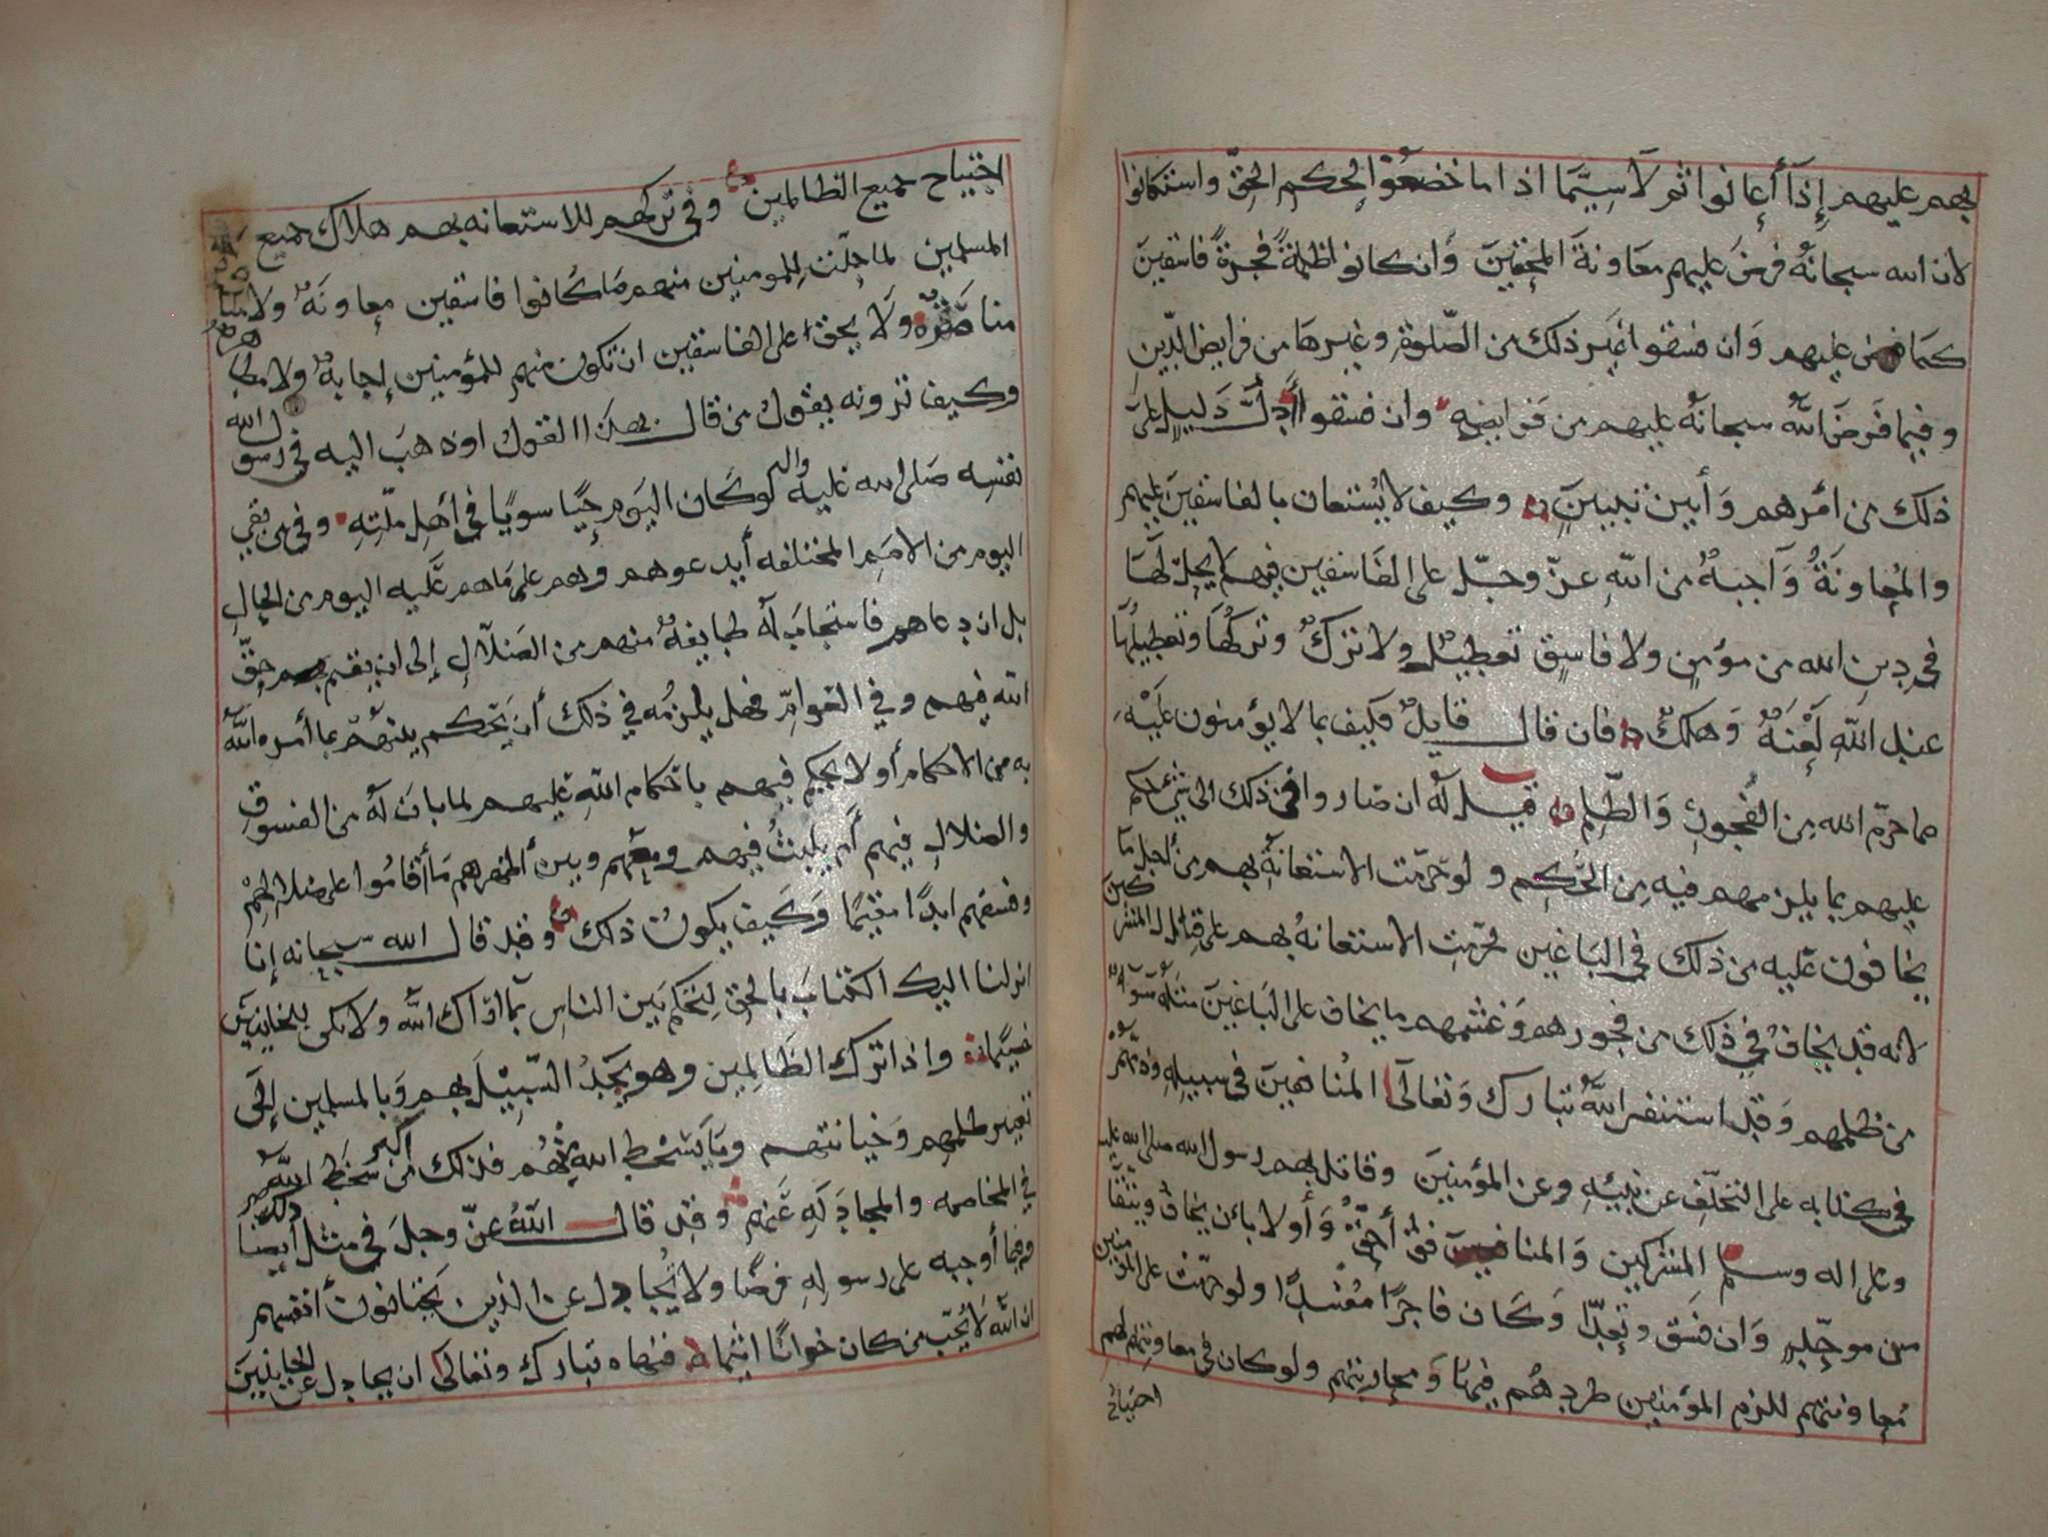 بهم عليهم إذا أعانوا ثم لا سيما اذا ما خضعوا لحكم الحق واستكانوا
لان الله سبحانه فرض عليهم معاونة المحقين وان كانوا ظلمة فجرة فاسقين
كما فرض عليهم وان فسقوا غير ذلك من الصلوة وغيرها من فرايض الدين
وفيما فرض الله سبحانه عليهم من فرايضه وان فسقوا أدل دليل على
ذلك من امرهم وأبين تبيين وكيف لا يستعان بالفاسقين عليهم
والمعاونة واجبة من الله عز وجل على الفاسقين فيهم لا يحل لها
في دين الله من مؤمن ولا فاسق تعطيل ولا ترك وتركها وتعطيلها
عند الله لعنة وهلك فان قال قايل فكيف بما لا يؤمنون عليه
مما حرم الله من الفجور والظلم قيل له ان صاروا في ذلك الى شئ حكم
عليهم بما يلزمهم فيه من الحكم ولو حرمت الاستعانة بهم من أجل ما
يخافون عليه من ذلك في الباغين لحرمت الاستعانة بهم على قتال المشركين
لانه قد يخاف في ذلك من فجورهم وغشمهم ما يخاف على الباغين مثله سواء
من ظلمهم وقد استنفر الله تبارك وتعالى المنافقين في سبيله وذمهم
في كتابه على التخلف عن نبيه وعن المؤمنين وقاتل بهم رسول الله صلى الله عليه
وعلى اله وسلم المشركين والمنافقين أحق وأولا بان يخاف ويتقا
من موحد وان فسق وتعدا وكان فاجرا مفسدا ولو حرمت على المؤمنين
معاونتهم للزم المؤمنين طردهم فيها ومحاربتهم ولو كان في معاونتهم لهم
اجتياح
اجتياح جميع الظالمين وفي تركهم للاستعانه بهم هلاك جميع
المسلمين لما حلت للمومنين منهم ما كانوا فاسقين معاونة ولا
مناصرة ولا يحق على الفاسقين ان تكون منهم للمؤمنين إجابة ولا
وكيف ترونه يقول من قال بهذا القول او ذهب اليه في رسول الله
نفسه صلى الله عليه واله لو كان اليوم حيا سويا في أهل ملته وفي من بقي
اليوم من الامم المختلفه أيدعوهم وهم على ما هم عليه اليوم من الحال
بل ان دعاهم فاستجاب له طايفة منهم من الضلال إلى ان يقيم بهم حق
الله فيهم وفي العوام فهل يلزمه في ذلك أن يحكم بينهم بما أمره الله
به من الاحكام أو لا يحكم فيهم باحكام الله عليهم لما بان له من الفسوق
والضلال فيهم أم يلبث فيهم ومعهم وبين أظهرهم ما أقاموا على ضلالهم
وفسقهم ابدا مقيما وكيف يكون ذلك وقد قال الله سبحانه إنا
انزلنا اليك الكتاب بالحق لتحكم بين الناس بما اراك الله ولا تكن للخاينين
خصيما واذا ترك الظالمين وهو يجد السبيل بهم وبالمسلمين إلى
تغيير ظلمهم وخيانتهم وما يسخط الله منهم فذلك من سخط الله اكبر
في المخاصمه والمجادله عنهم وقد قال الله عز وجل في مثل ذلك أيضا
وفيما أوجبه على رسوله فرضا ولا تجادل عن الذين يختانون أنفسهم
ان الله لا يحب من كان خوانا اثيما فنهاه تبارك وتعالى ان يجادل عن الخاينين